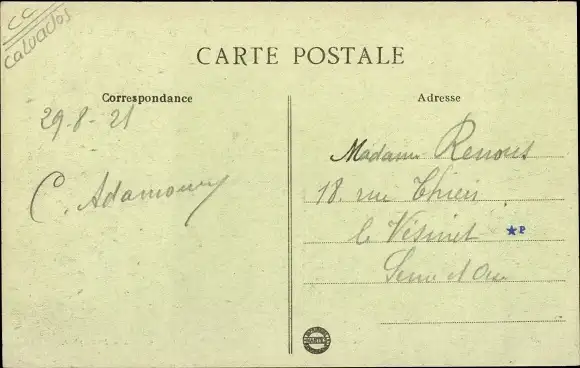 CC
Calvados
CARTE POSTALE
Correspondance
Adresse
29-8-21
C. Adamowy
Madame Renous
18. rue Thiers
le Vésinet
★P
Seine et Oise